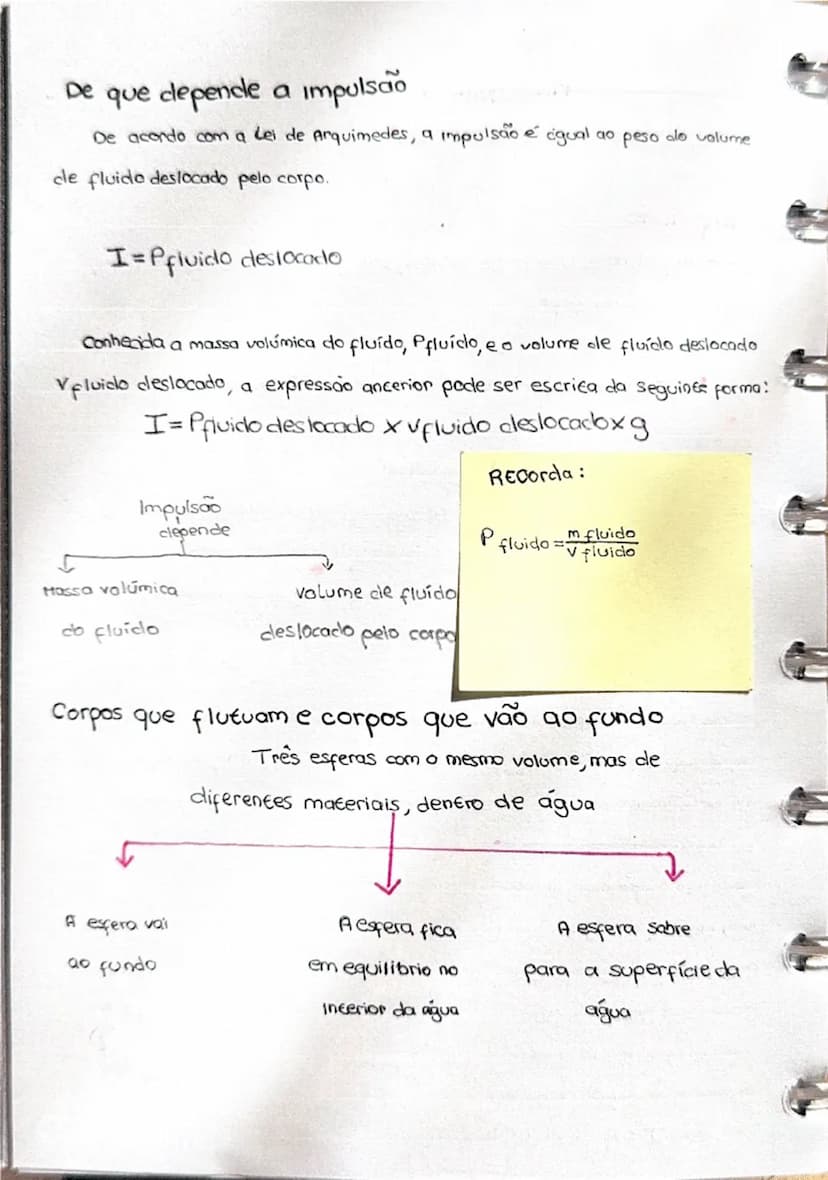 De que depende a impulsão
De acordo com a Lei de Arquimedes, a impulsão é igual ao peso do volume
de fluido deslocado pelo corpo.
I = Pfluido deslocado
Conhecida a massa volúmica do fluído, Pfluído, e o volume de fluído deslocado
Vfluido deslocado, a expressão anterior pode ser escrita da seguinte forma:
I = Pfluido deslocado x Vfluido deslocado x g
RECorda:
Impulsão
depende
P fluido = m fluido
V fluido
Massa volúmica
do fluído
volume de fluído
deslocado pelo corpo
Corpos que flutuam e corpos que vão ao fundo
Três esferas com o mesmo volume, mas de
diferentes materiais, dentro de água
A esfera vai
ao fundo
A esfera fica
em equilíbrio no
interior da água
A esfera sobre
para a superfície da
água